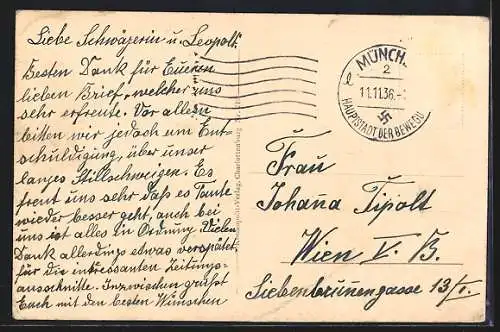 Liebe Schwägerin u. Leopold.
Besten Dank für Eueren
lieben Brief, welcher uns
sehr erfreute. Vor allem
bitten wir jedoch um Ent-
schuldigung, über unser
langes Stillschweigen. Es
freut uns sehr daß es Tante
wieder besser geht, auch bei
uns ist alles in Ordnung. Vielen
Dank allerdings etwas verspätet,
für die interessanten Zeitungs-
ausschnitte. Inzwischen grüßt
Euch mit den besten Wünschen
MÜNCH.
2
11.11.36.-
HAUPTSTADT DER BEWEGU
Frau
Johana Tipolt
Wien V. B.
Siebenbrunengasse 13/I.